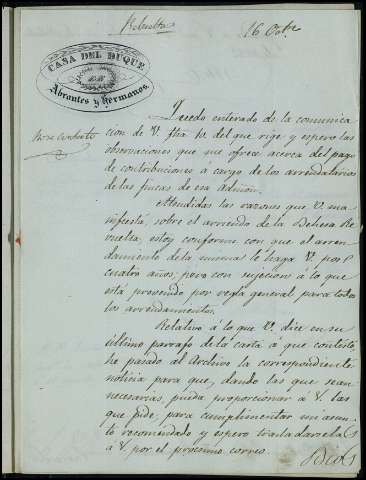 Rebuelta
16 Octe
CASA DEL DUQUE
DE
Abrantes y hermanos.
Quedo enterado de la comunica
cion de V. fha 12 del que rige, y espero las
observaciones que me ofrece acerca del pago
de contribuciones á cargo de los arrendatarios
de las fincas de esa Admon.
Attendidas las razones que V. ma
nifiesta, sobre el arriendo de la Dehesa Re
vuelta, estoy conforme con que el arren
damiento de la misma le haga V. por
cuatro años; pero con sujecion á lo que
está prevenido por regla general para todos
los arrendamientos.
Relativo á lo que V. dice en su
último parrafo de la carta á que contesto,
he pasado al Archivo la correspondiente
noticia para que, dando las que sean
necesarias, pueda proporcionar á V. las
que pide, para cumplimentar mi asun
to recomendado y espero trasladarselas
á V. por el procsimo correo.
Dios